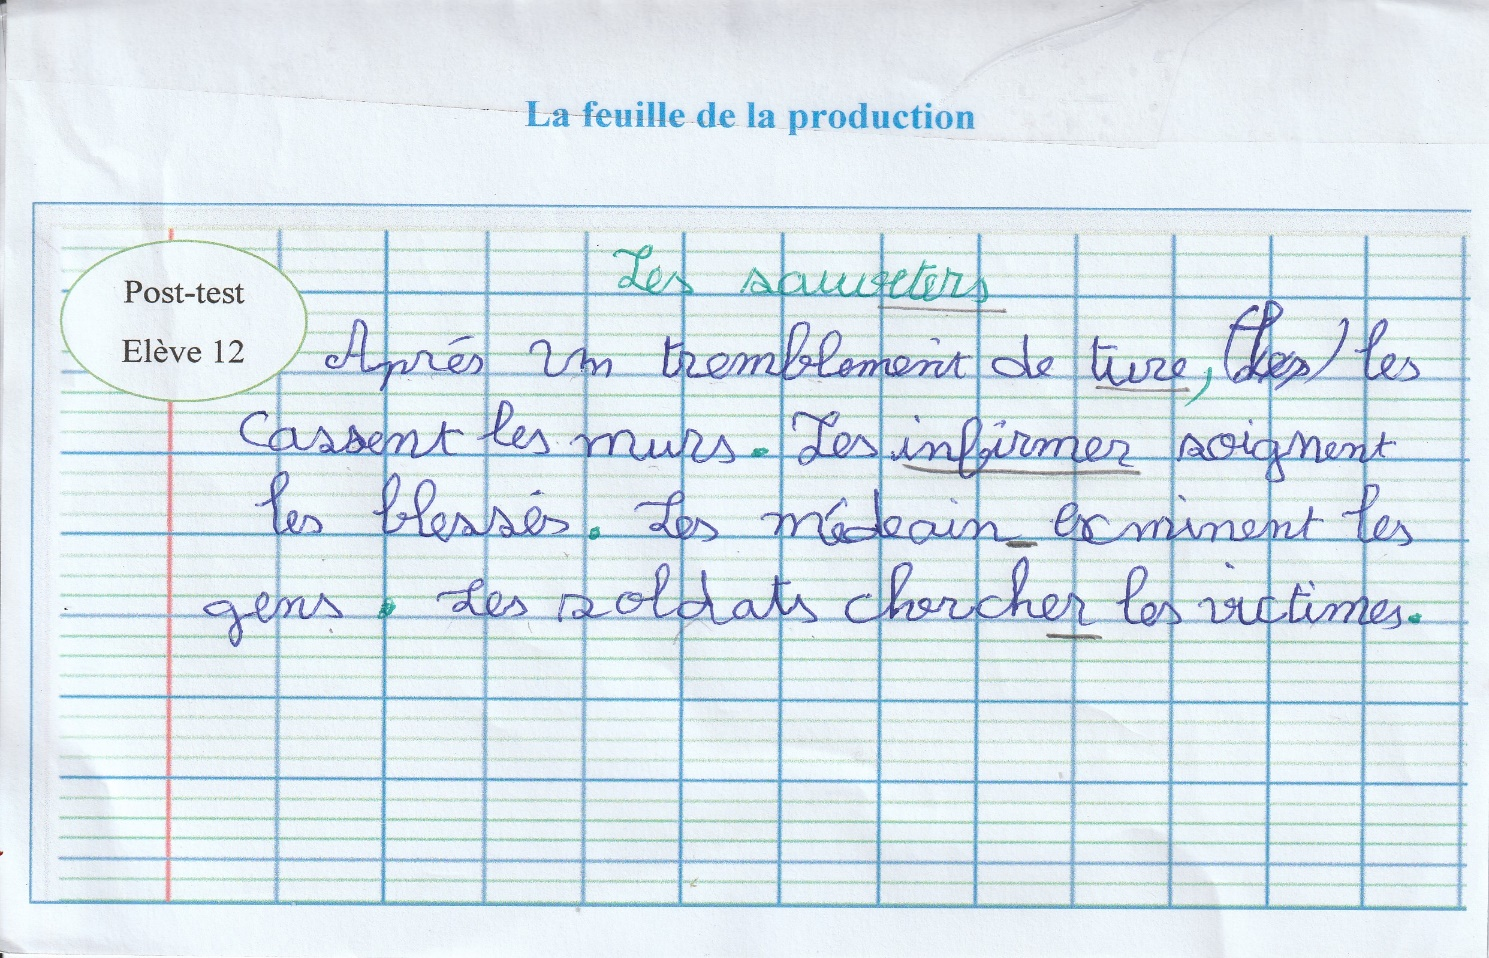 La feuille de la production
Post-test
Elève 12
Les sauveters
Aprés un tremblement de ture, (Les) les
cassent les murs. Les infirmer soignent
les blessés. Les médecain exminent les
gens. Les soldats chercher les victimes.